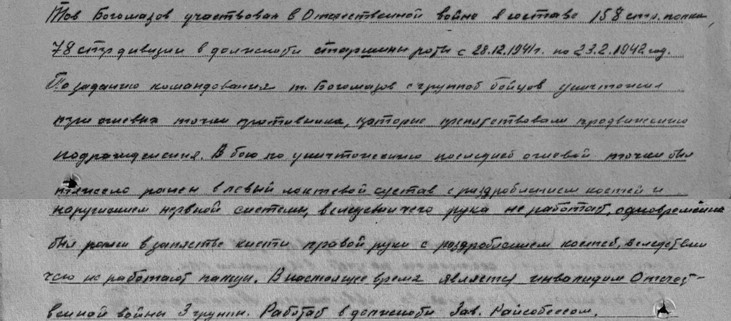 Тов Богомазов участвовал в Отечественной войне в составе 158 стр. полка
78 стр дивизии в должности старшины роты с 28.12.1941г. по 23.2.1942 год.
По заданию командования т. Богомазов с группой бойцов уничтожил
три огневых точки противника, которые препятствовали продвижению
подразделения. В бою по уничтожению последней огневой точки был
тяжело ранен в левый локтевой сустав с раздроблением костей и
нарушением нервной системы, вследствии чего рука не работает, одновременно
был ранен в запястье кисти правой руки с раздроблением костей, вследствии
чего не работают пальцы. В настоящее время является инвалидом Отечест-
венной войны 3 группы. Работает в должности Зав. Райсобесом.